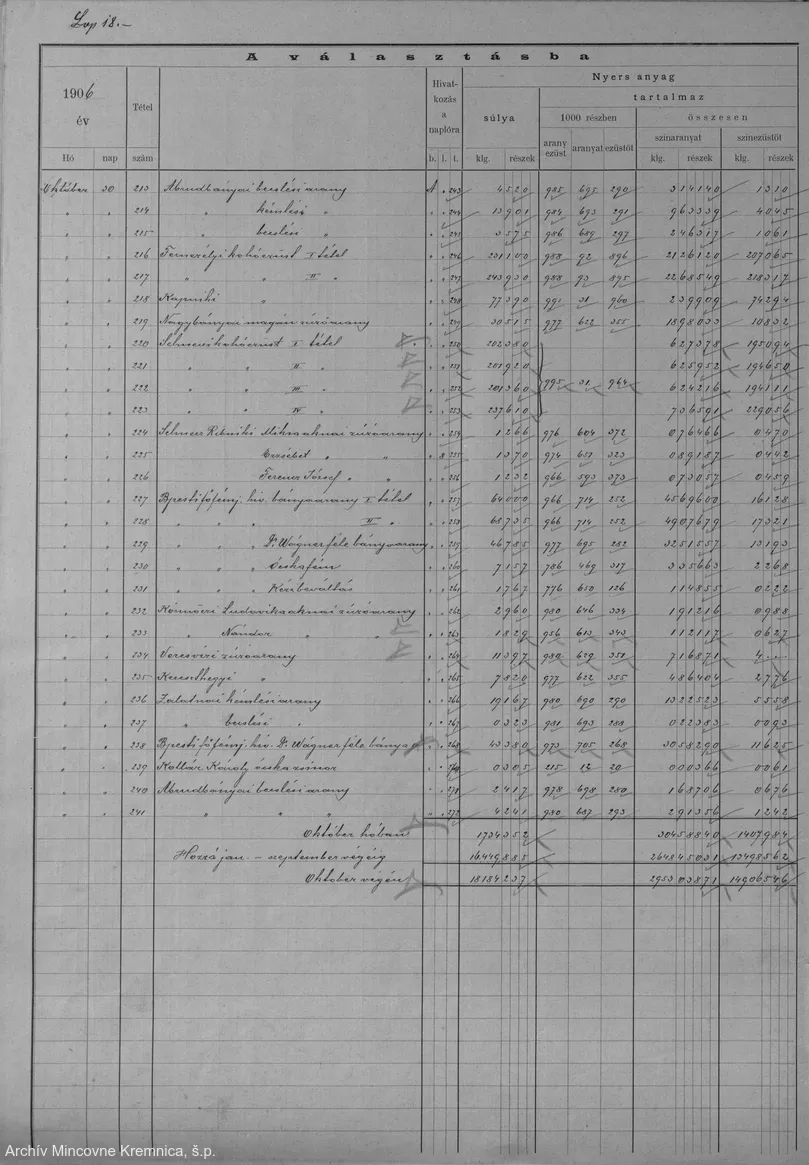 Lap 18.-
A választásba
1906 év
Hó nap
Tétel szám
Hivatkozás a naplóra
b. l. t.
Nyers anyag
súlya
klg. részek
tartalmaz
1000 részben
arany ezüst aranyat ezüstöt
összesen
színaranyat színezüstöt
klg. részek klg. részek
Október 30 213 Abrudbányai beeslési arany A " 243 4520 985 695 290 314140 1310
" " 214 " kémlési " " " 244 13901 984 693 291 963339 4045
" " 215 " beeslési " " " 245 3575 986 689 297 246317 1061
" " 216 Fernezélyi kohóezüst I tétel " " 246 231100 988 92 896 2126120 207065
" " 217 " " II " " " 247 243930 988 93 895 2268549 218317
" " 218 Kapniki " " " 248 77390 991 31 960 239909 74294
" " 219 Nagybányai magán zúzóarany " " 249 30515 977 622 355 1898033 10832
" " 220 Selmeci kohóezüst I tétel " " 250 202380 627378 195094
" " 221 " " II " " " 251 201920 625952 194650
" " 222 " " III " " " 252 201360 995 31 964 624216 194111
" " 223 " " IV " " " 253 237610 736591 229056
" " 224 Selmecz Miksa aknai zúzóarany " " 254 1266 976 604 372 076466 0470
" " 225 Erzsébet " " " " 255 1370 974 651 323 089187 0442
" " 226 Ferencz József " " " " 256 1232 966 593 373 073057 0459
" " 227 Bpesti főfémj. hiv. bányaarany I tétel " " 257 64000 966 714 252 4569600 16128
" " 228 " " " II " " " 258 68735 966 714 252 4907679 17321
" " 229 " " " Dr. Wagner féle bányaarany " " 259 46785 977 695 282 3251557 13193
" " 230 " " " " " 260 7157 786 469 317 335663 2268
" " 231 " " " Kézbeváltás " " 261 1767 776 650 126 114855 0222
" " 232 Körmöczi Ludovika aknai zúzóarany " " 262 2960 980 646 334 191216 0988
" " 233 " Nándor " " " " 263 1829 956 613 343 112117 0627
" " 234 Veresvízi zúzóarany " " 264 11397 980 629 351 716871 4...
" " 235 Kereszthegyi " " " 265 7820 977 622 355 486404 2776
" " 236 Zalatnai kémlési arany " " 266 19167 980 690 290 1322523 5558
" " 237 " beeslési " " " 267 0323 981 693 288 022383 0093
" " 238 Bpesti főfémj. hiv. Dr. Wagner féle bánya a " " 268 43380 973 705 268 3058290 11625
" " 239 Kollár Károly " " 269 0305 215 12 20 000366 0061
" " 240 Abrudbányai beeslési arany " " 271 2417 978 698 280 168706 0676
" " 241 " " " " " 272 4241 980 687 293 291356 1242
Október hóban 1734352 30458840 1407984
Hozzá jan. - szeptember végéig 16449885 264845031 13498562
Október végén 18184237 295303871 14906546
Archív Mincovne Kremnica, š.p.